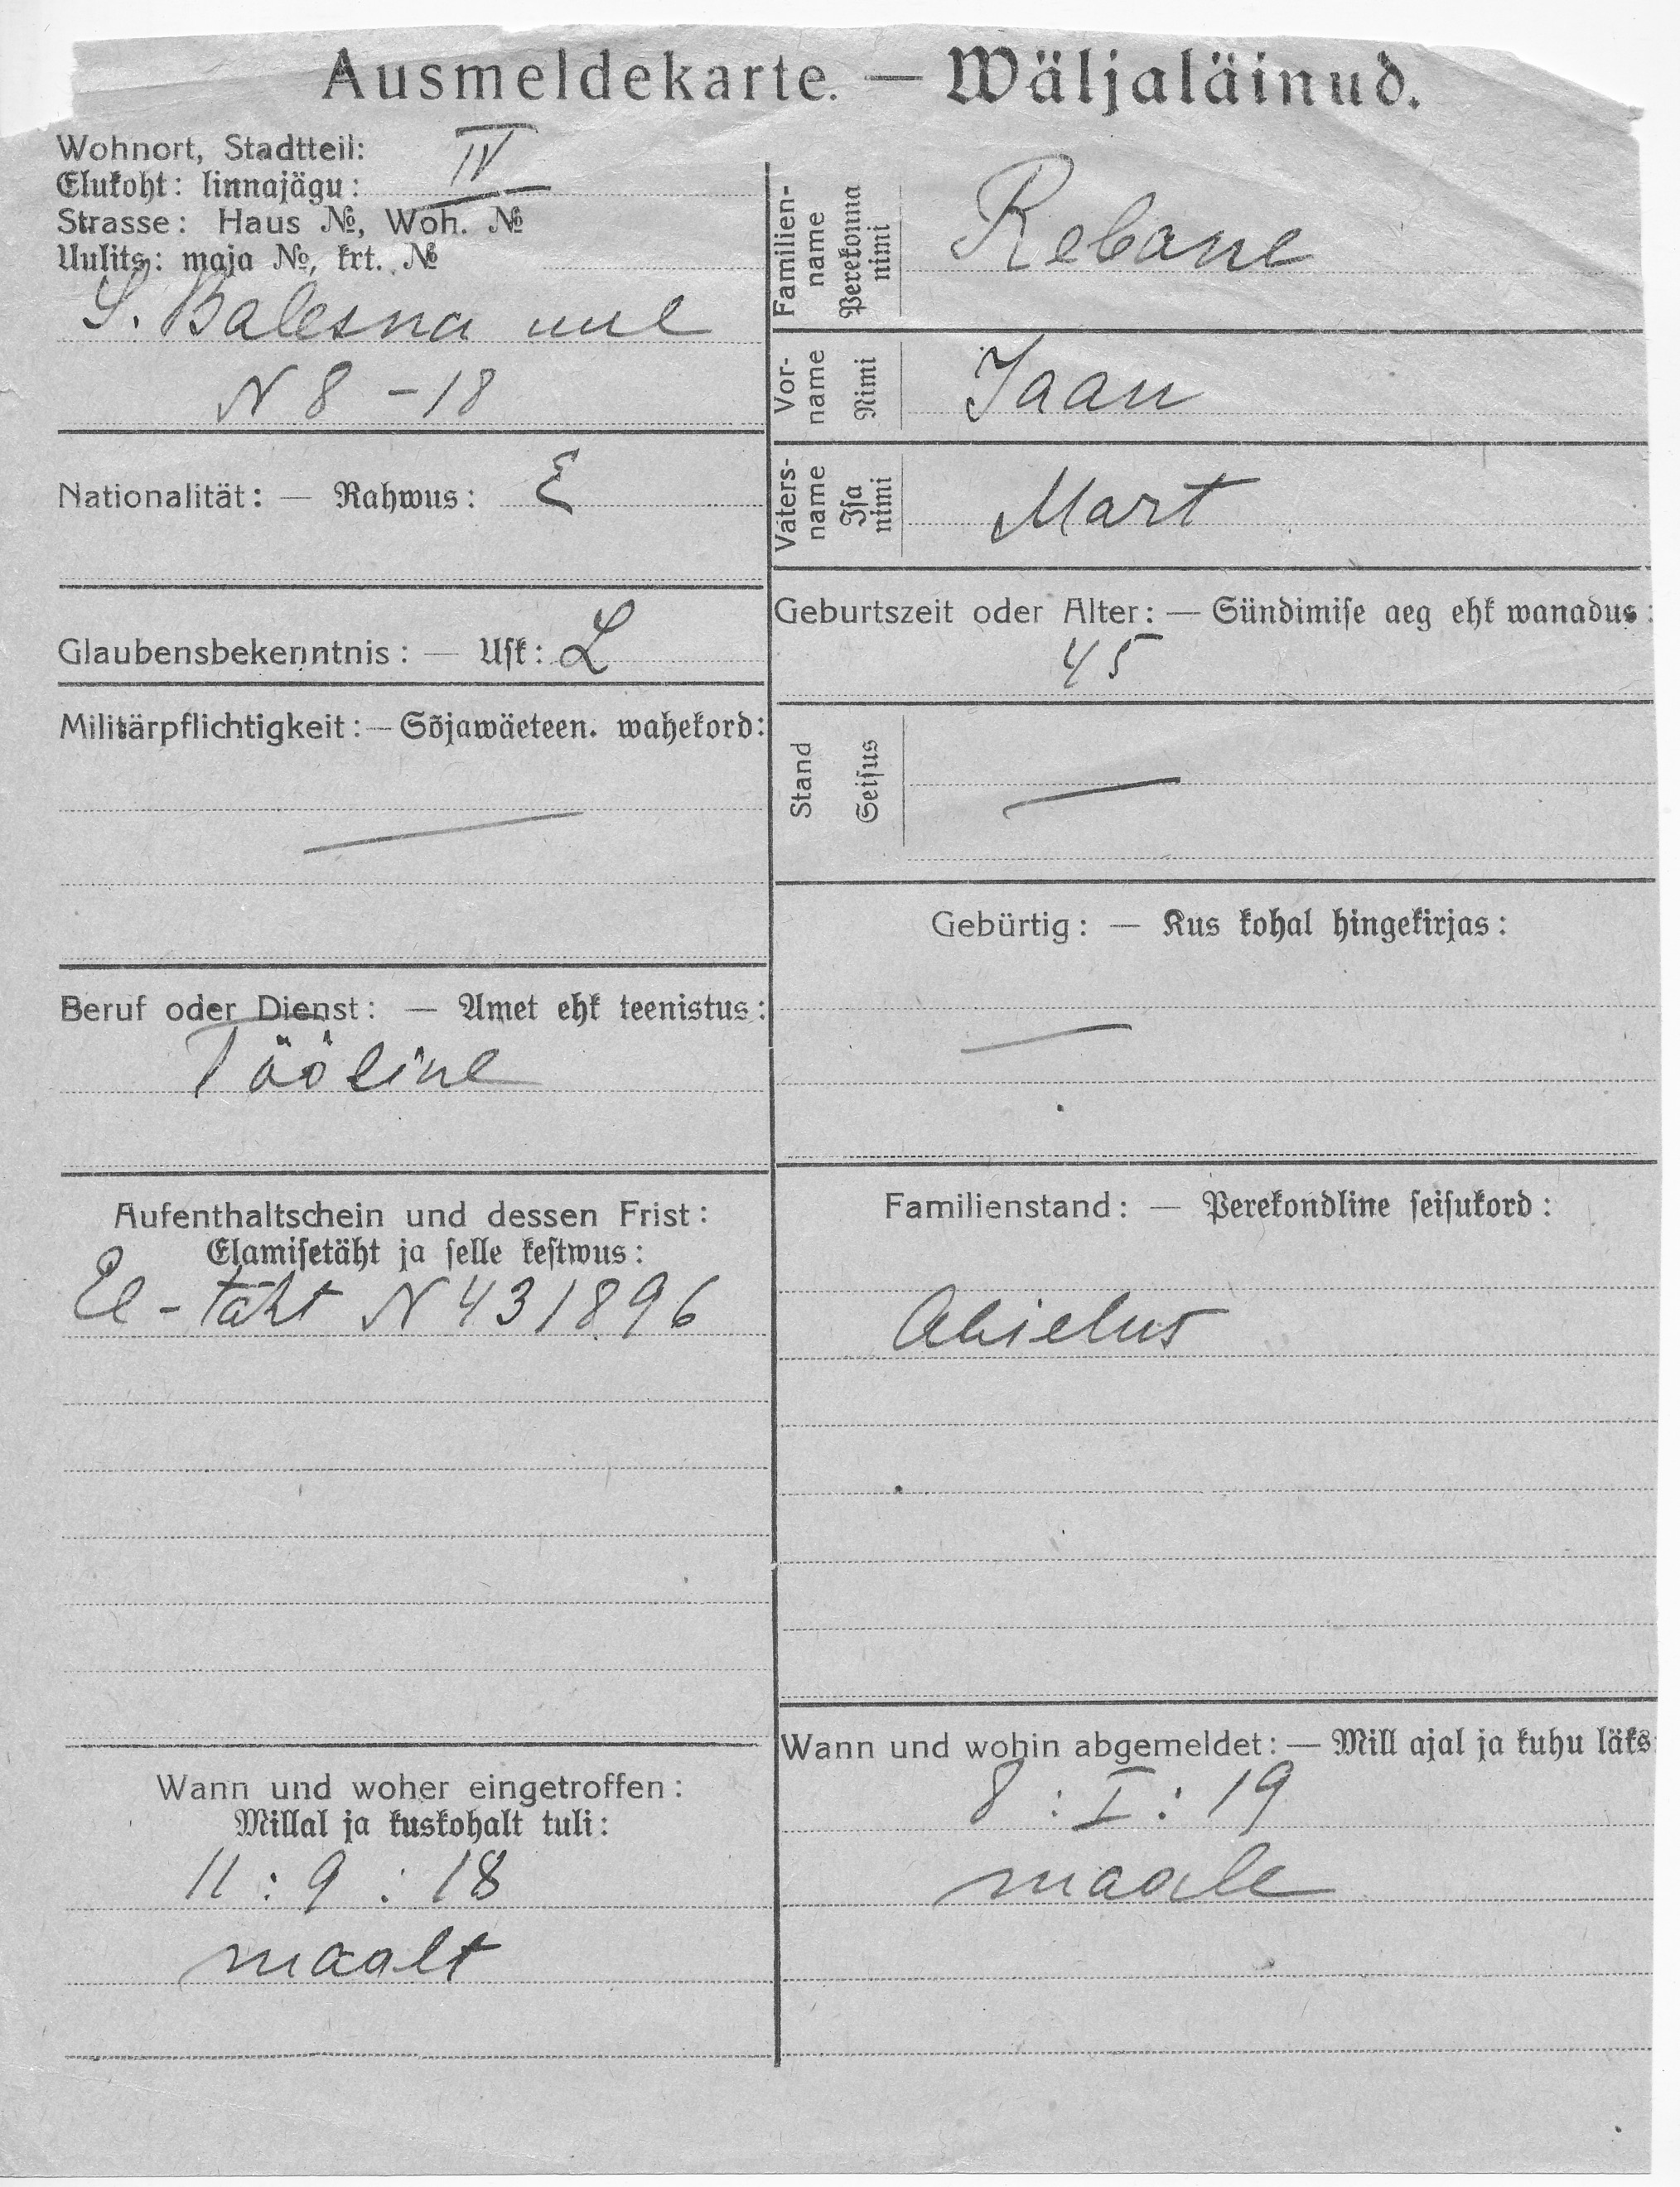 Ausmeldekarte. — Wäljaläinud.
Wohnort, Stadtteil: IV
Elukoht: linnajägu:
Strasse: Haus №, Woh. №
Uulits: maja №, krt. №
S. Balesna uul
N 8 - 18
Nationalität: — Rahwus: E
Glaubensbekenntnis: — Usk: L
Militärpflichtigkeit: — Sõjawäeteen. wahekord:
—
Beruf oder Dienst: — Amet ehk teenistus:
Tööline
Aufenthaltschein und dessen Frist:
Elamisetäht ja selle kestwus:
El - täht N 431896
Wann und woher eingetroffen:
Millal ja kuskohalt tuli:
11 : 9 : 18
maalt
Familien-
name
Perekonna
nimi
Rebane
Vor-
name
Nimi
Jaan
Vaters-
name
Isa
nimi
Mart
Geburtszeit oder Alter: — Sündimise aeg ehk wanadus:
45
Stand
Seisus
—
Gebürtig: — Kus kohal hingekirjas:
—
Familienstand: — Perekondline seisukord:
Abielus
Wann und wohin abgemeldet: — Mill ajal ja kuhu läks
8 : I : 19
maale